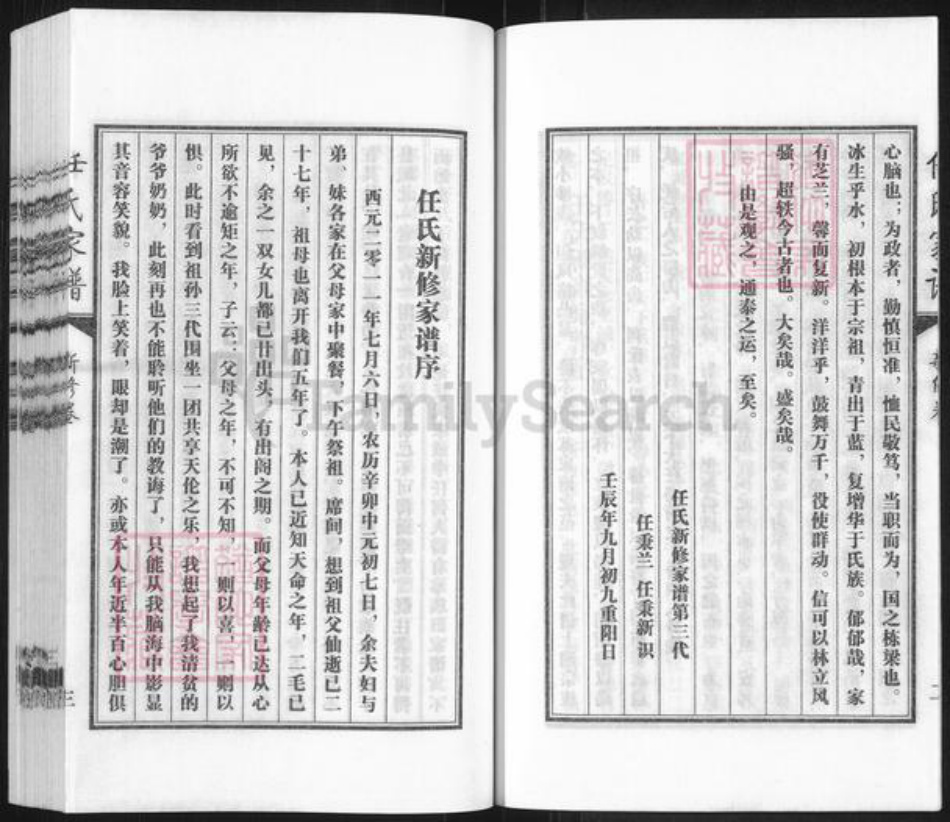 心脑也；为政者，勤慎恒准，恤民敬笃，当职而为，国之栋梁也。
冰生乎水，初根本于宗祖，青出于蓝，复增华于氏族。郁郁哉，家
有芝兰，馨而复新。洋洋乎，鼓舞万千，役使群动。信可以林立风
骚，超轶今古者也。大矣哉。盛矣哉。
由是观之，通泰之运，至矣。
任氏新修家谱第三代
任秉兰 任秉新 识
壬辰年九月初九重阳日
任氏家谱
新修卷
三
任氏新修家谱序
西元二零一一年七月六日，农历辛卯中元初七日，余夫妇与
弟、妹各家在父母家中聚餐，下午祭祖。席间，想到祖父仙逝已二
十七年，祖母也离开我们五年了。本人已近知天命之年，二毛已
见，余之一双女儿都已廿出头，有出阁之期。而父母年龄已达从心
所欲不逾矩之年，子云：父母之年，不可不知，一则以喜，一则以
惧。此时看到祖孙三代围坐一团共享天伦之乐，我想起了我清贫的
爷爷奶奶，此刻再也不能聆听他们的教诲了，只能从我脑海中影显
其音容笑貌。我脸上笑着，眼却是潮了。亦或本人年近半百心胆俱
FamilySearch